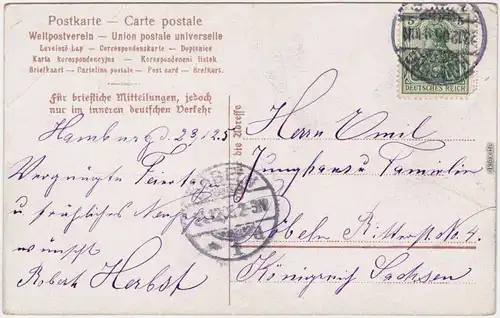 Postkarte – Carte postale
Weltpostverein – Union postale universelle
Levelező-Lap – Correspondenzkarte – Dopisnice
Karta korespondencyjna – Korespondeni listek
Briefkaart – Cartolina postale – Post card – Brefkort.
Für briefliche Mitteilungen, jedoch
nur im inneren deutschen Verkehr
Hamburg d 23/12 5
Vergnügte Feiertage
u fröhliches Neujahr
wünscht
Robert Herbst
die Adresse
DEUTSCHES REICH
Herrn Emil
Junghans u Familie
Döbeln Ritterst. No 4.
Königreich Sachsen